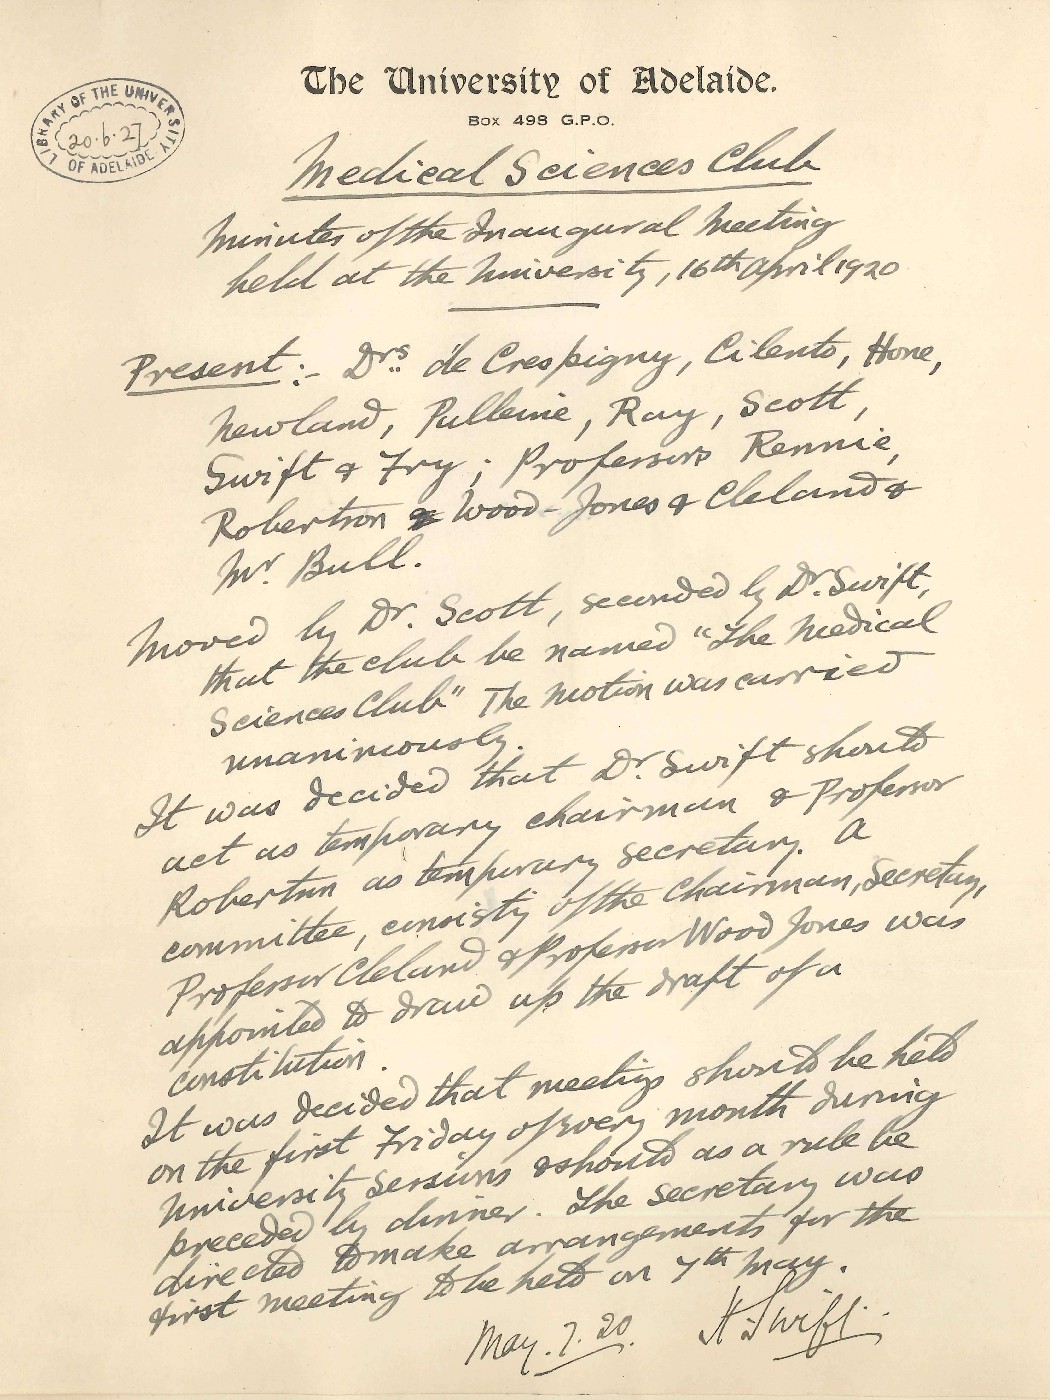 The University of Adelaide.
Box 498 G.P.O.
LIBRARY OF THE UNIVERSITY
20.6.27
OF ADELAIDE
Medical Sciences Club
Minutes of the Inaugural Meeting
held at the University, 16th April 1920
Present:- Drs. de Crespigny, Cilento, Hone,
Newland, Pulleine, Ray, Scott,
Swift & Fry; Professors Rennie,
Robertson & Wood-Jones & Cleland &
Mr. Bull.
Moved by Dr. Scott, seconded by Dr. Swift,
that the club be named "The Medical
Sciences Club" The motion was carried
unanimously.
It was decided that Dr. Swift should
act as temporary chairman & Professor
Robertson as temporary secretary. A
committee, consisting of the Chairman, Secretary,
Professor Cleland & Professor Wood Jones was
appointed to draw up the draft of a
constitution.
It was decided that meetings should be held
on the first Friday of every month during
University Sessions & should as a rule be
preceded by dinner. The secretary was
directed to make arrangements for the
first meeting to be held on 7th May.
May. 7. 20. H. Swift.